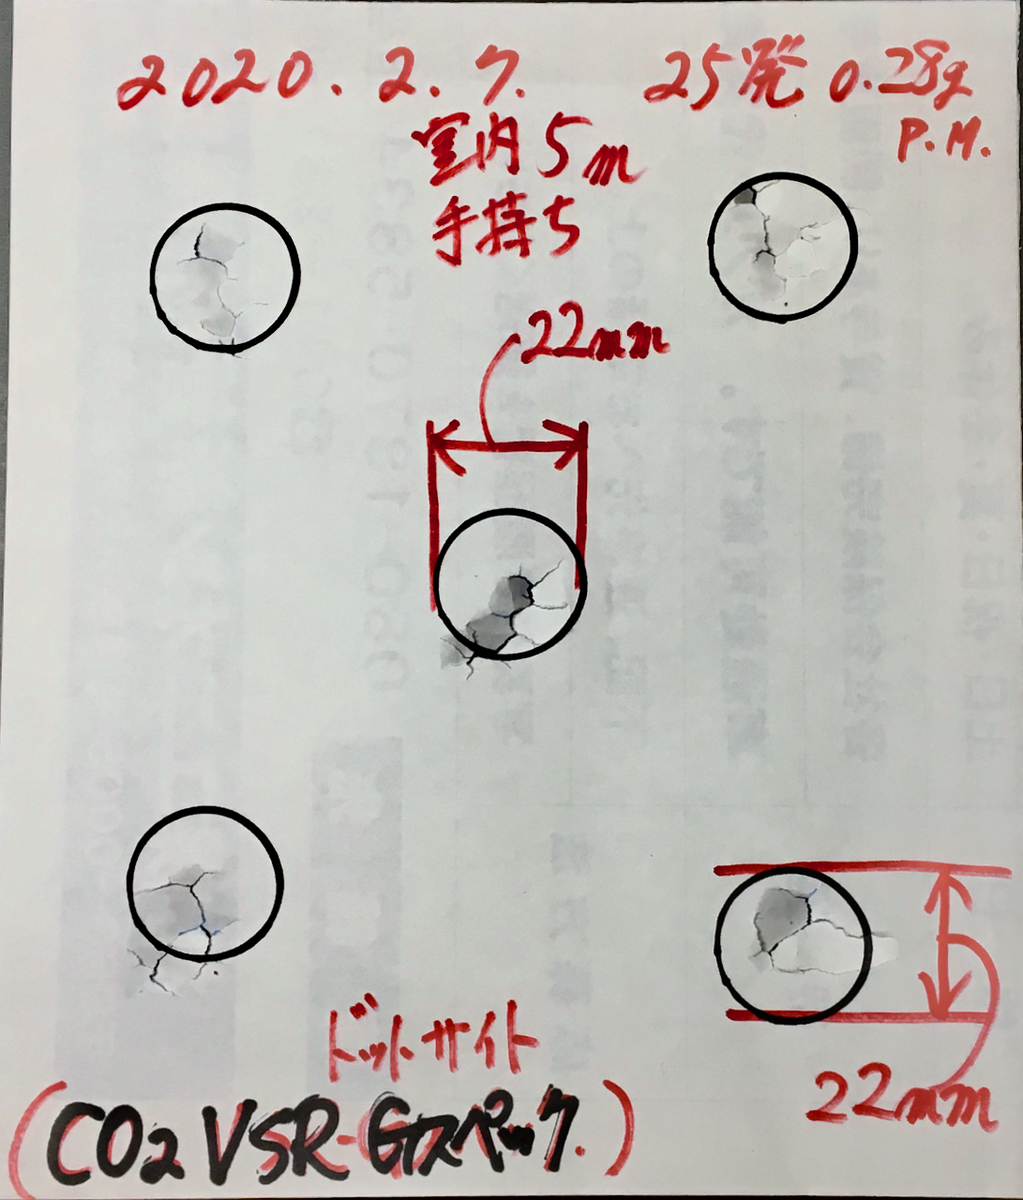 2020.2.7.
25発 0.28g
P.M.
室内5m
手持ち
22mm
22mm
ドットサイト
(CO2 VSR-Gスペック.)